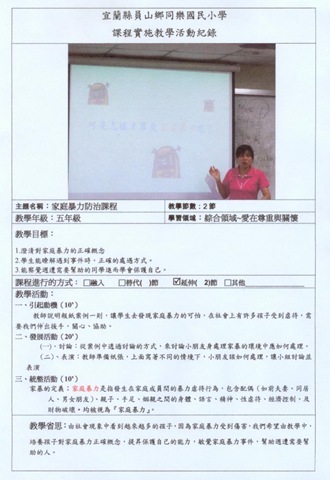 宜蘭縣員山鄉同樂國民小學
課程實施教學活動紀錄
主題名稱：家庭暴力防治課程
教學節數：2 節
教學年級：五年級
學習領域：綜合領域~愛在尊重與關懷
教學目標：
1.澄清對家庭暴力的正確概念
2.學生能瞭解遇到事件時，正確的處遇方式。
3.能察覺週遭需要幫助的同學進而學會保護自己。
課程進行的方式：□融入 □替代( )節 ☑延伸( 2)節 □其他
教學活動：
一、引起動機（10"）
教師說明報紙案例一則，讓學生去發現家庭暴力的可怕，在社會上有許多孩子受到虐待，需
要我們伸出援手，關心、協助。
二、發展活動（20"）
(一)、討論：從案例中透過討論的方式，來討論小朋友身處理家暴的環境中應如何處理。
(二)、表演：教師準備紙張，上面寫著不同的情境下，小朋友該如何處理，讓小組討論並
表演
三、統整活動（10"）
家暴的定義：家庭暴力是指發生在家庭成員間的暴力虐待行為，包含配偶（如前夫妻、同居
人、男女朋友）、親子、手足、姻親之間的身體、語言、精神、性虐待、經濟控制、及
財物破壞。均被視為『家庭暴力』。
教學省思：由社會現象中看到越來越多的孩子，因為家庭暴力受到傷害，我們希望由教學中，
培養孩子對家庭暴力正確概念，提昇保護自己的能力，敏覺家庭暴力事件，幫助週遭需要幫
助的人。